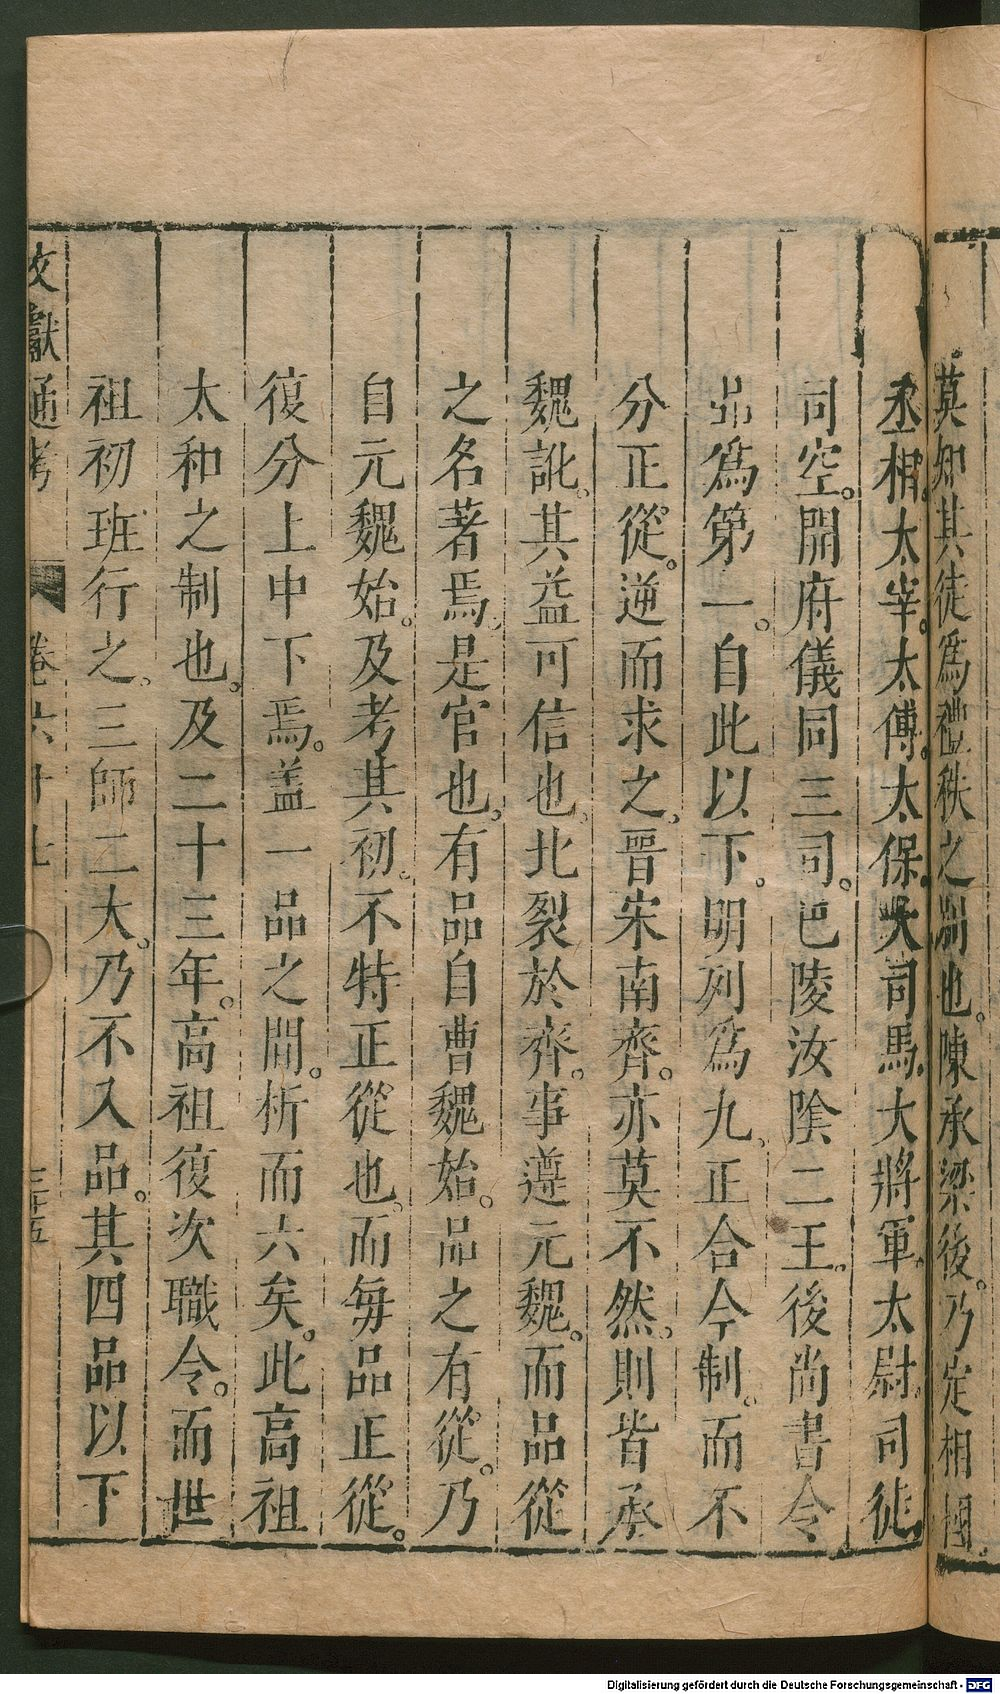 莫知其徒爲禮秩之別也。陳承梁後。乃定相國。
丞相。太宰。太傅。太保。大司馬。大將軍。太尉。司徒。
司空。開府儀同三司。巴陵汝陰二王。後尚書令
品爲第一。自此以下。明列爲九。正合今制。而不
分正從。逆而求之。晉宋南齊。亦莫不然。則皆承
魏訛。其益可信也。北裂於齊。事遵元魏。而品從
之名著焉。是官也。有品自曹魏始。品之有從。乃
自元魏始。及考其初。不特正從也。而每品正從。
復分上中下焉。盖一品之間。析而六矣。此高祖
太和之制也。及二十三年。高祖復次職令。而世
祖初班行之。三師二大。乃不入品。其四品以下
文獻通考 卷六十七 三十五
Digitalisierung gefördert durch die Deutsche Forschungsgemeinschaft - DFG